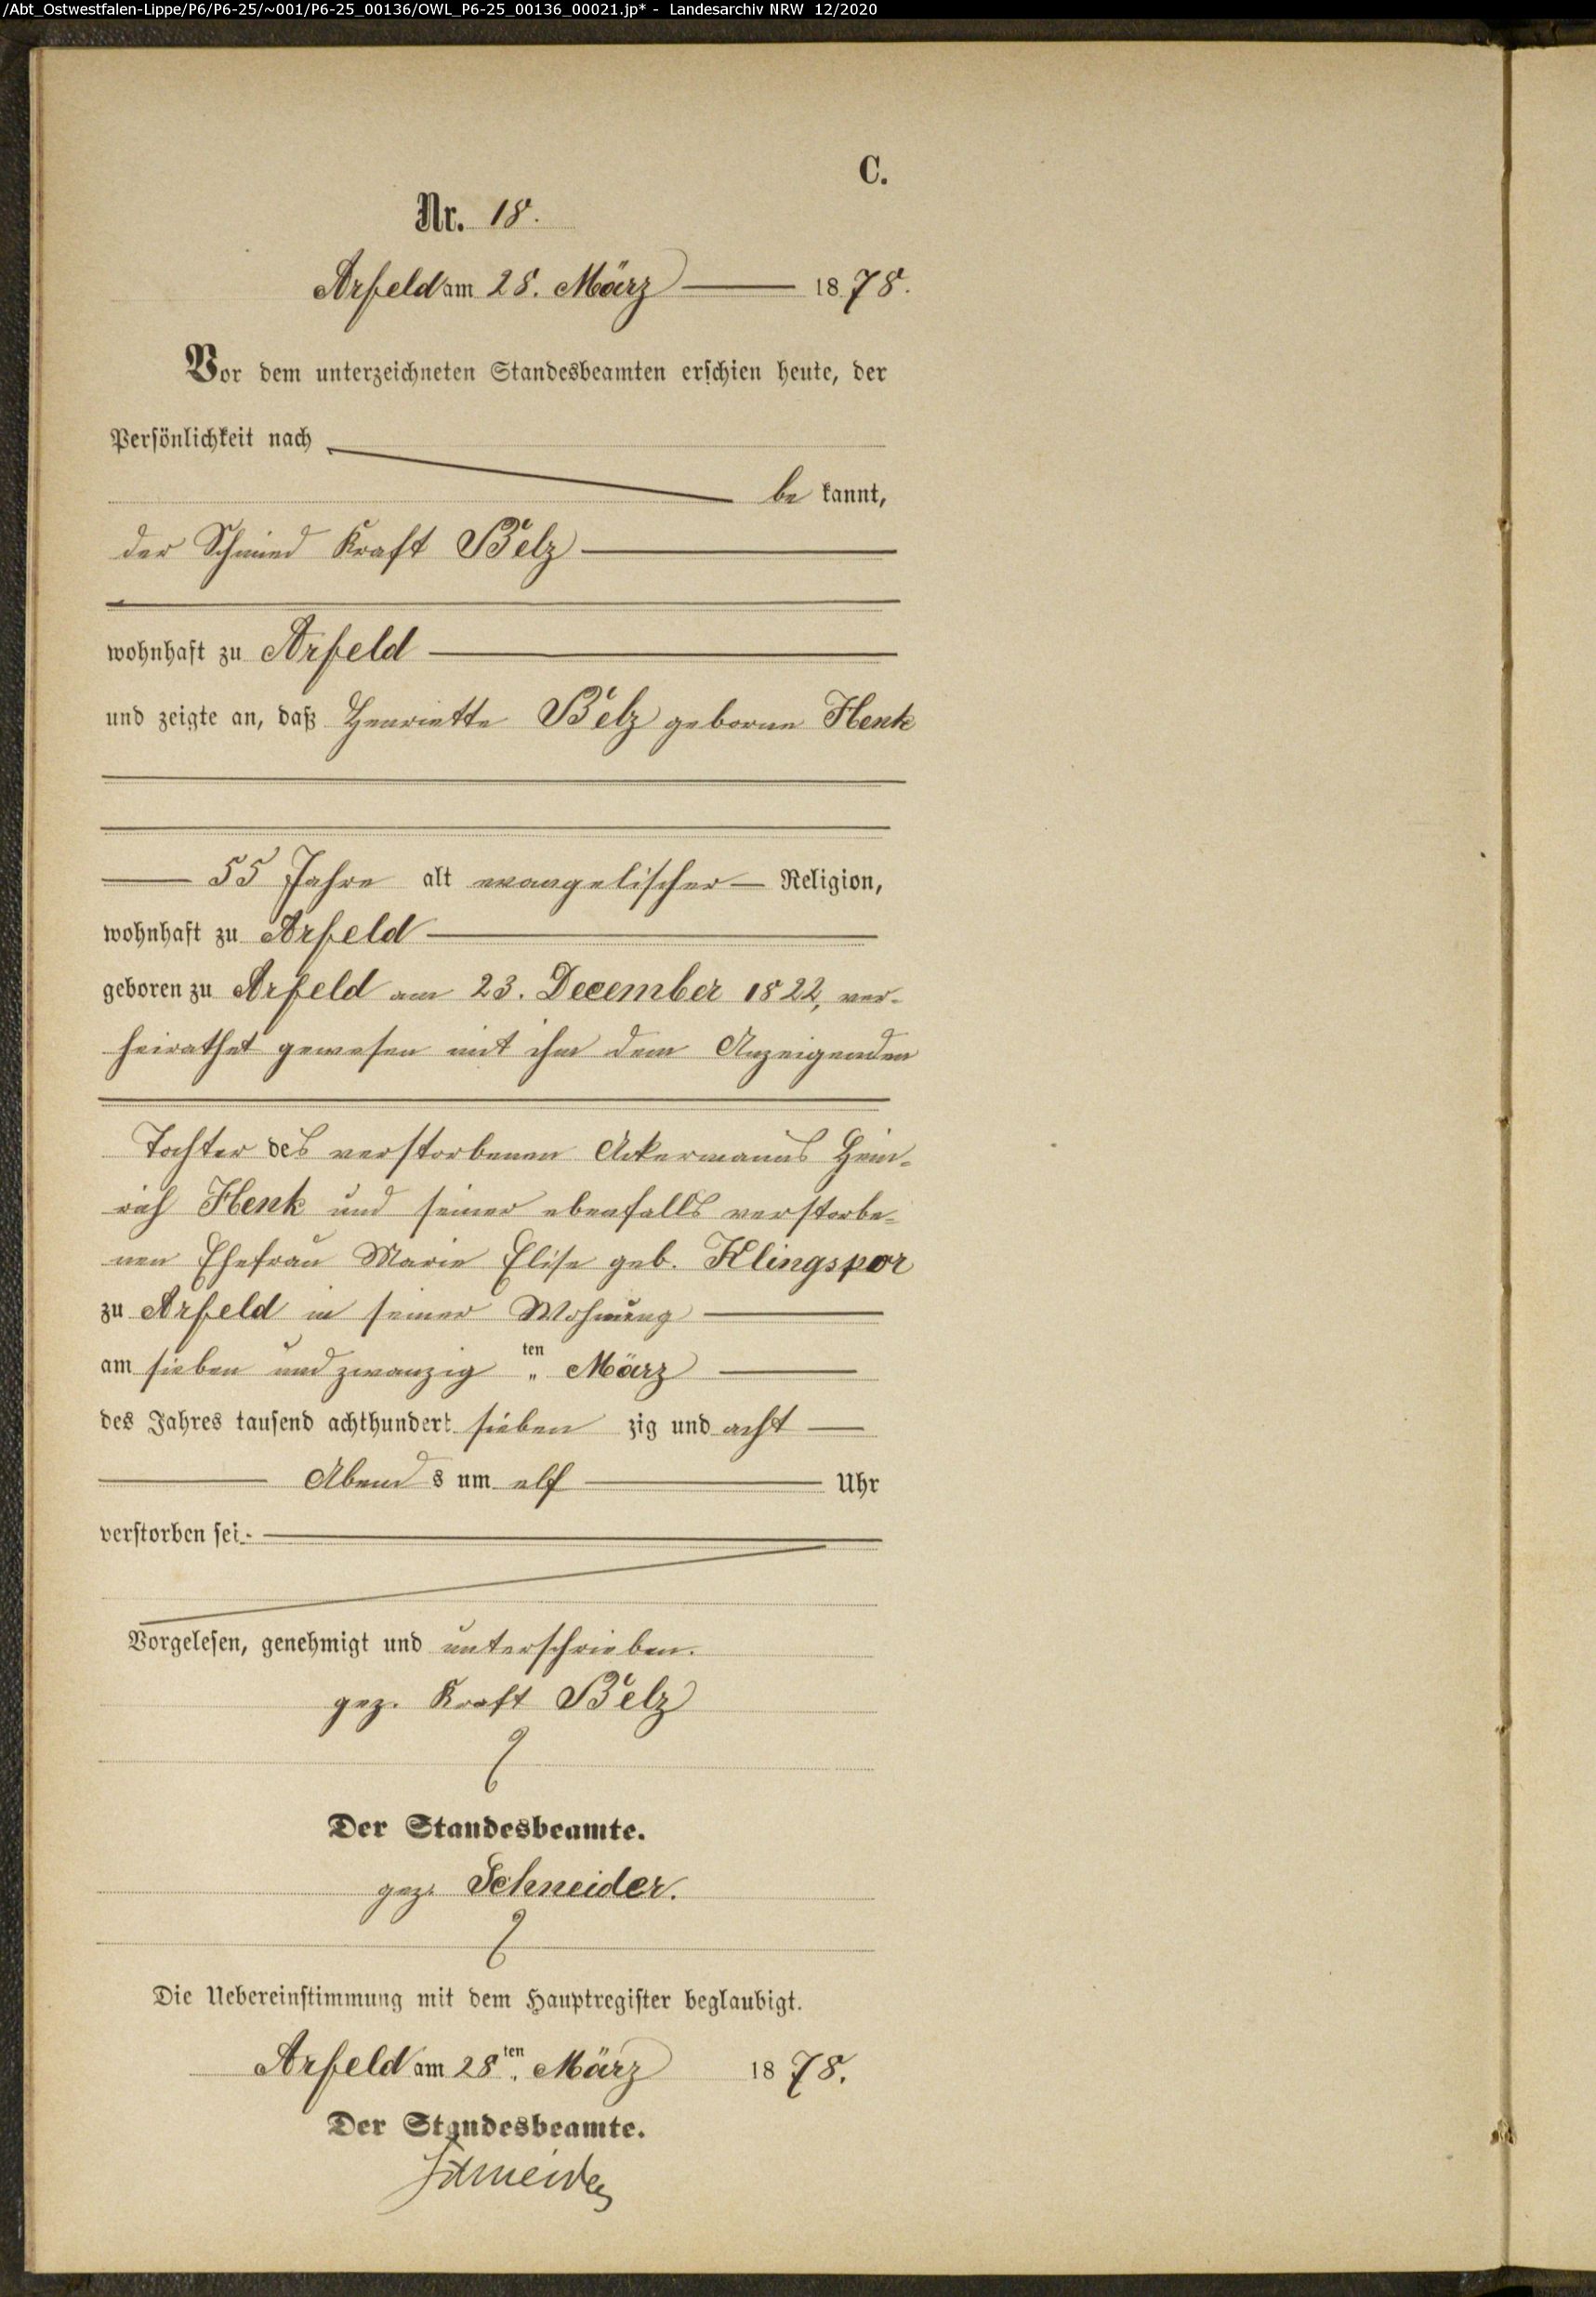 /Abt_Ostwestfalen-Lippe/P6/P6-25/~001/P6-25_00136/OWL_P6-25_00136_00021.jp* - Landesarchiv NRW 12/2020
C.
Nr. 18.
Arfeld am 28. März 1878.
Vor dem unterzeichneten Standesbeamten erschien heute, der
Persönlichkeit nach
be kannt,
der Schmied Kraft Bélz
wohnhaft zu Arfeld
und zeigte an, daß Henriette Bélz geborne Henk
55 Jahre alt evangelischer Religion,
wohnhaft zu Arfeld
geboren zu Arfeld am 23. December 1822, ver-
heirathet gewesen mit ihm dem Anzeigenden
Tochter des verstorbenen Ackermanns Hein-
rich Henk und seiner ebenfalls verstorbe-
nen Ehefrau Marie Elise geb. Klingspor
zu Arfeld in seiner Wohnung
am sieben und zwanzig ten März
des Jahres tausend achthundert sieben zig und acht
Abend s um elf Uhr
verstorben sei.
Vorgelesen, genehmigt und unterschrieben.
gez. Kraft Bélz
Der Standesbeamte.
gez. Schneider.
Die Uebereinstimmung mit dem Hauptregister beglaubigt.
Arfeld am 28ten März 1878.
Der Standesbeamte.
Schneider